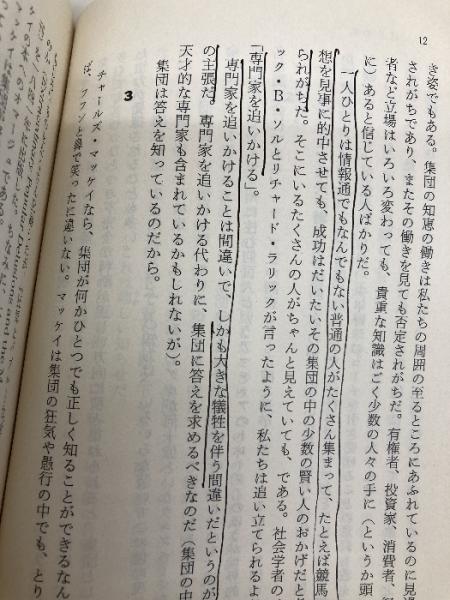 12
き姿でもある。集団の知恵の働きは私たちの周囲の至るところにあふれているのに見過
されがちであり、またその働きを見ても否定されがちだ。有権者、投資家、消費者、
者など立場はいろいろ変わっても、貴重な知識はごく少数の人々の手に（というか頭
に）あると信じている人ばかりだ。
一人ひとりは情報通でもなんでもない普通の人がたくさん集まって、たとえば競馬
想を見事に的中させても、成功はだいたいその集団の中の少数の賢い人のおかげだと
られがちだ。そこにいるたくさんの人がちゃんと見えていても、である。社会学者の
ック・B・ソルとリチャード・ラリックが言ったように、私たちは追い立てられるよ
「専門家を追いかける」。
専門家を追いかけることは間違いで、しかも大きな犠牲を伴う間違いだというのが
の主張だ。専門家を追いかける代わりに、集団に答えを求めるべきなのだ（集団の中
天才的な専門家も含まれているかもしれないが）。
集団は答えを知っているのだから。
3
チャールズ・マッケイなら、集団が何かひとつでも正しく知ることができるなん
ば、フフンと鼻で笑ったに違いない。マッケイは集団の狂気や愚行の中でも、とり